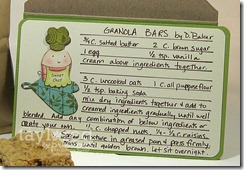 GRANOLA BARS by D. Baker
3/4 c. salted butter 2 c. brown sugar
1 egg 1/2 tsp. vanilla
cream above ingredients together.
3 c. uncooked oats 1 c. all purpose flour
1/2 tsp. baking soda
mix dry ingredients together & add to
creamed ingredients gradually, until well
blended. Add any combination of below ingredients or
create your own. 1/2 c. chopped nuts, 3/4 c. raisins,
mixture in greased pan & press firmly.
until golden brown. Let sit overnight.
Sweet
Chef